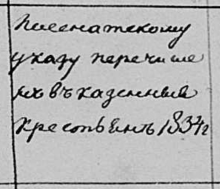 Посенатскому
указу перечисле
ныхвъ казенныя
крестьянъ 1834г